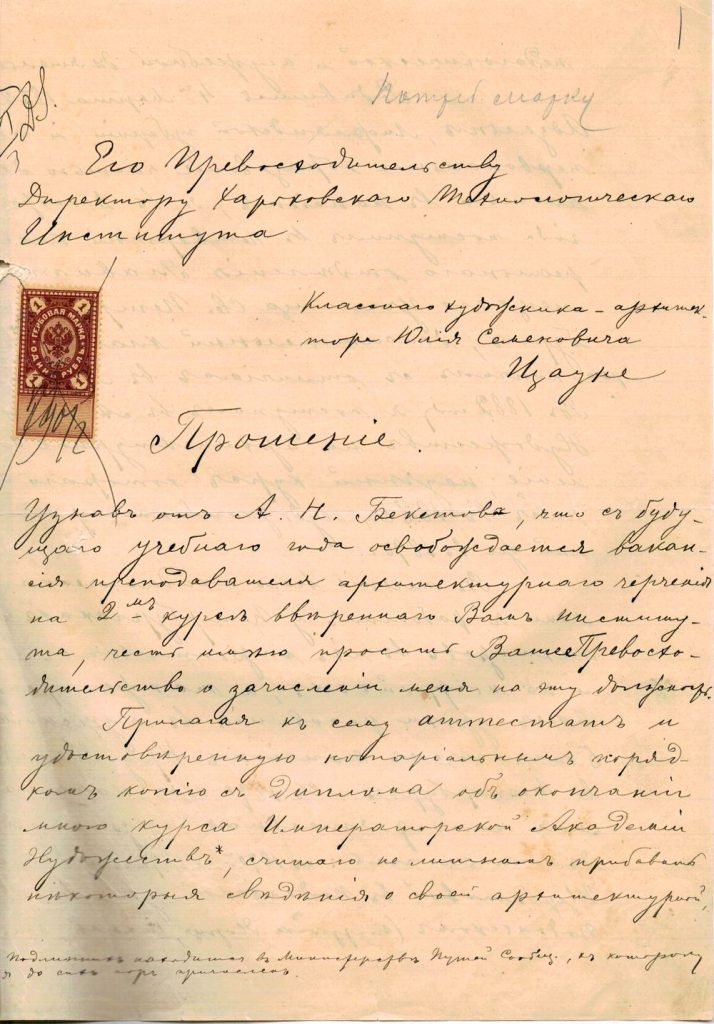 1
Его Превосходительству
Директору Харьковскаго Технологическаго
Института
1 1
ГЕРБОВАЯ МАРКА
ОДИНЪ РУБЛЬ
1 1
Класснаго художника-архитек-
тора Юлія Семеновича
Цауне
Прошеніе.
Узнавъ отъ А. Н. Бекетова, что съ буду-
щаго учебнаго года освобождается вакан-
сія преподавателя архитектурнаго черченія
на 2мъ курсѣ ввѣреннаго Вамъ институ-
та, честь имѣю просить Ваше Превосхо-
дительство о зачисленіи меня на эту должность.
Прилагая къ сему аттестатъ и
удостовѣренную нотаріальнымъ поряд-
комъ копію съ диплома объ окончаніи
мною курса Императорской Академіи
Художествъ*, считаю не лишнимъ прибавить
нѣкоторыя свѣдѣнія о своей архитектурной,
Подлинникъ находится въ Министерствѣ Путей Сообщ., къ которому
я до сихъ поръ причисленъ.